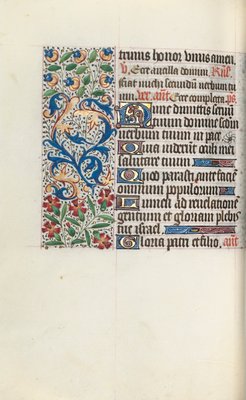 trinus honor unus amen.
V. Ecce ancilla domini. R.
fiat michi secundū verbum tu
um. ver. añt. Ecce completa. ps.
Nunc dimittis servū
tuum domine secūn
verbum tuum in pace
Quia viderūt oculi mei
salutare tuum
Quod parasti ante faciē
omnium populorum
Lumen ad revelationē
gentium et gloriam plebis
tue israel.
Gloria patri et filio. añt